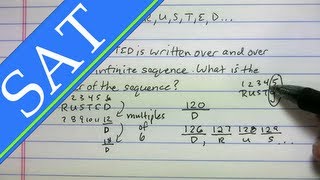 SAT
R, U, S, T, E, D...
is written over and over
infinite sequence. What is the
of the sequence?
1 2 3 4 5
R U S T
2 3 4 5 6
R U S T E D
7 8 9 10 11 12
D
18
D
multiples
of
6
120
D
126 127 128 129
D, R U S...